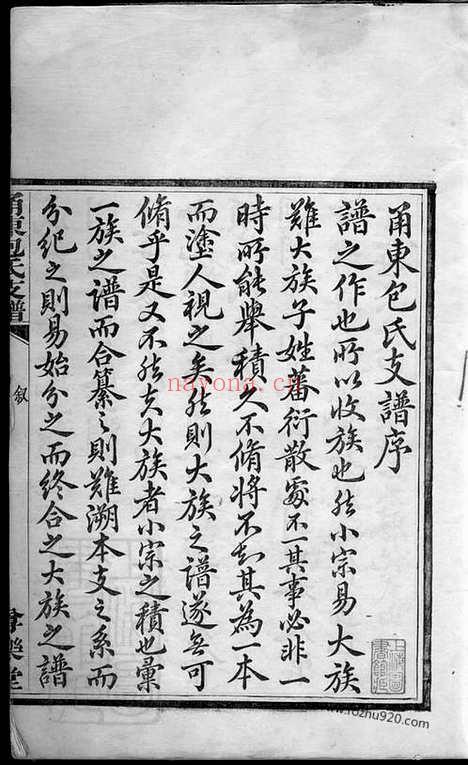 甬東包氏支譜序
譜之作也所以收族也然小宗易大族
難大族子姓蕃衍散處不一其事必非一
時所能舉積久不脩將不知其為一本
而塗人視之矣然則大族之譜遂無可
脩乎是又不然夫大族者小宗之積也彙
一族之譜而合纂之則難溯本支之系而
分紀之則易始分之而終合之大族之譜
甬東包氏支譜
敘
堂
nayona.cn
www.fozhu920.com